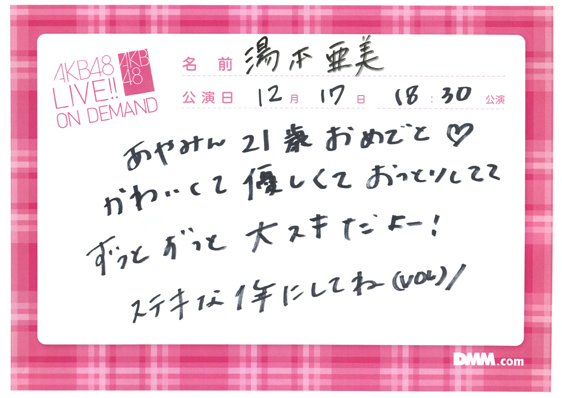 AKB48
LIVE!!
ON DEMAND
AKB
48
名前 湯本亜美
公演日 12月 17日 18:30 公演
あやみん 21歳 おめでと♡
かわいくて 優しくて おっとりしてて
ずっと ずっと 大スキ だよー!
ステキな 1年にしてね(VOL)/
DMM.com